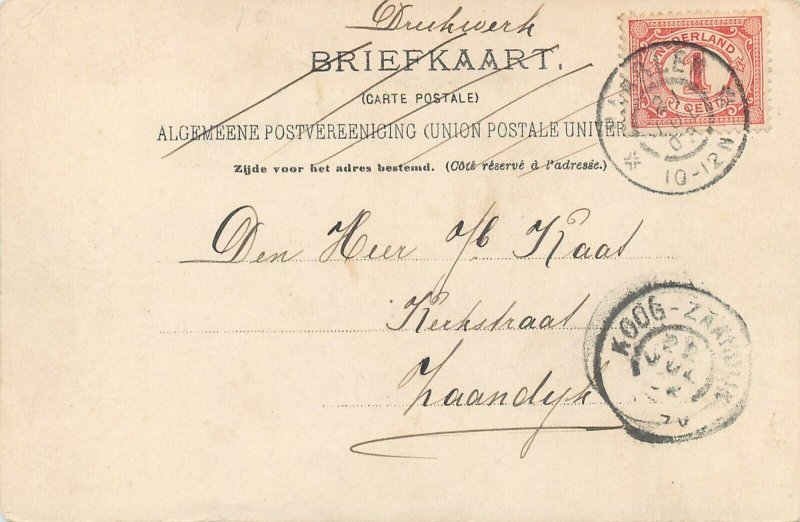 Drukwerk
BRIEFKAART.
(CARTE POSTALE)
ALGEMEENE POSTVEREENIGING (UNION POSTALE UNIVER
Zijde voor het adres bestemd. (Côté réservé à l'adresse.)
NEDERLAND
1
CENT
10-12N
Den Heer
Kaat
Kerkstraat
Zaandyk
KOOG-ZAANDIJK